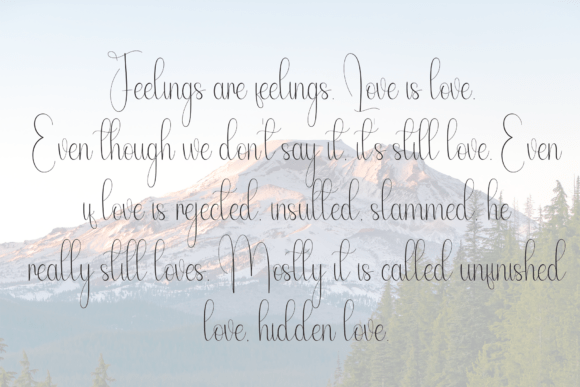 Feelings are feelings. Love is love.
Even though we don't say it, it's still love. Even
if love is rejected, insulted, slammed, he
really still loves. Mostly it is called unfinished
love, hidden love